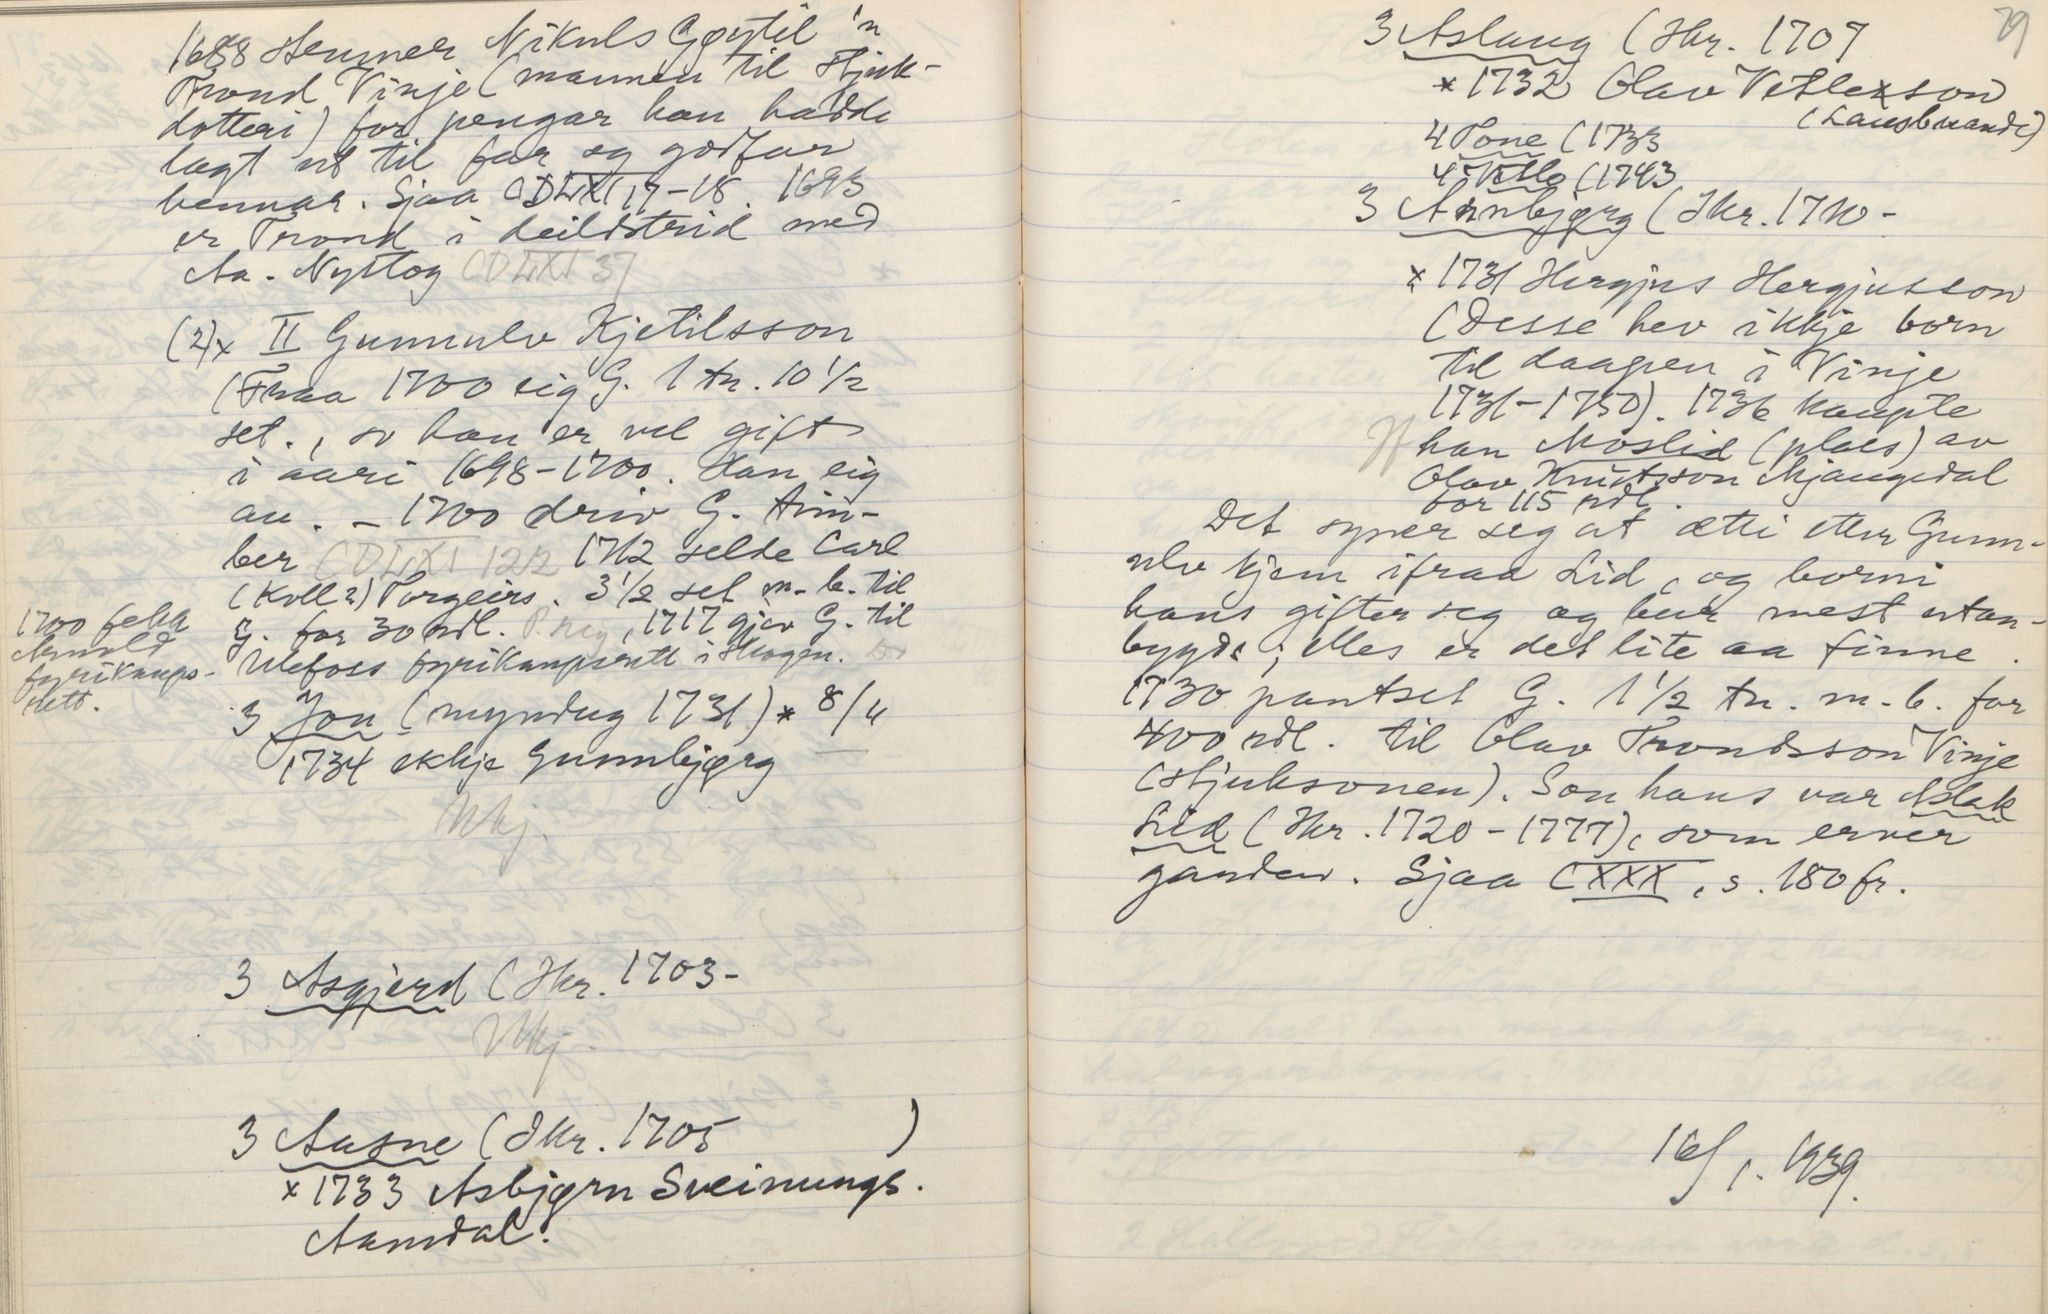 1688 stemner Nikuls Gøytil 'n
Trond Vinje (mannen til stjuk-
dotteri) for pengar han hadde
lagt ut til far og godfar
hennar. Sjaa CDLXI 17-18. 1693
er Trond i deildstrid med
Aa. Nystog CDLXI 37
(2)x II Gunnulv Kjetilsson
(Fraa 1700 eig G. 1 tn. 10 1/2
set., so han er vel gift
i aari 1698-1700. Han eig
au. - 1700 driv G. tim-
ber CDLXI 122 1712 selde Carl
(Koll?) Torgeirs. 3 1/2 set m.b. til
G. for 30 rdl. P.reg, 1717 gjev G. til
Ulefoss fyrikaupsrett i skogen. Do
1700 fekk
Arnold
fyrikaups-
rett.
3 Jon (myndug 1731) x 8/4
1734 ekkje Gunnbjørg
Ukj.
3 Asgjerd (Ikr. 1703-
Ukj.
3 Aasne (Ikr. 1705 )
x 1733 Asbjørn Sveinungs.
Aamdal.
79
3 Aslaug (Ikr. 1707
x 1732 Olav Vetlesson
(Lausbuande)
4 Tone (1733
4 Vetle (1743
3 Annbjørg (Ikr. 1710-
x 1731 Hergjus Hergjusson
(Desse hev ikkje born
til daapen i Vinje
1731-1750). 1736 kaupte
han Moslid (plass) av
Olav Knutsson Mjaugedal
for 115 rdl.
Det syner seg at ætti etter Gunn-
ulv kjem ifraa Lid, og borni
hans gifter seg og bur mest utan-
bygds; elles er det lite aa finne.
1730 pantset G. 1 1/2 tn. m.b. for
400 rdl. til Olav Trondsson Vinje
(stjuksonen). Son hans var Aslak
Lid (Ikr. 1720-1777), som erver
garden. Sjaa CXXX, s. 180 fr.
16/1. 1939.